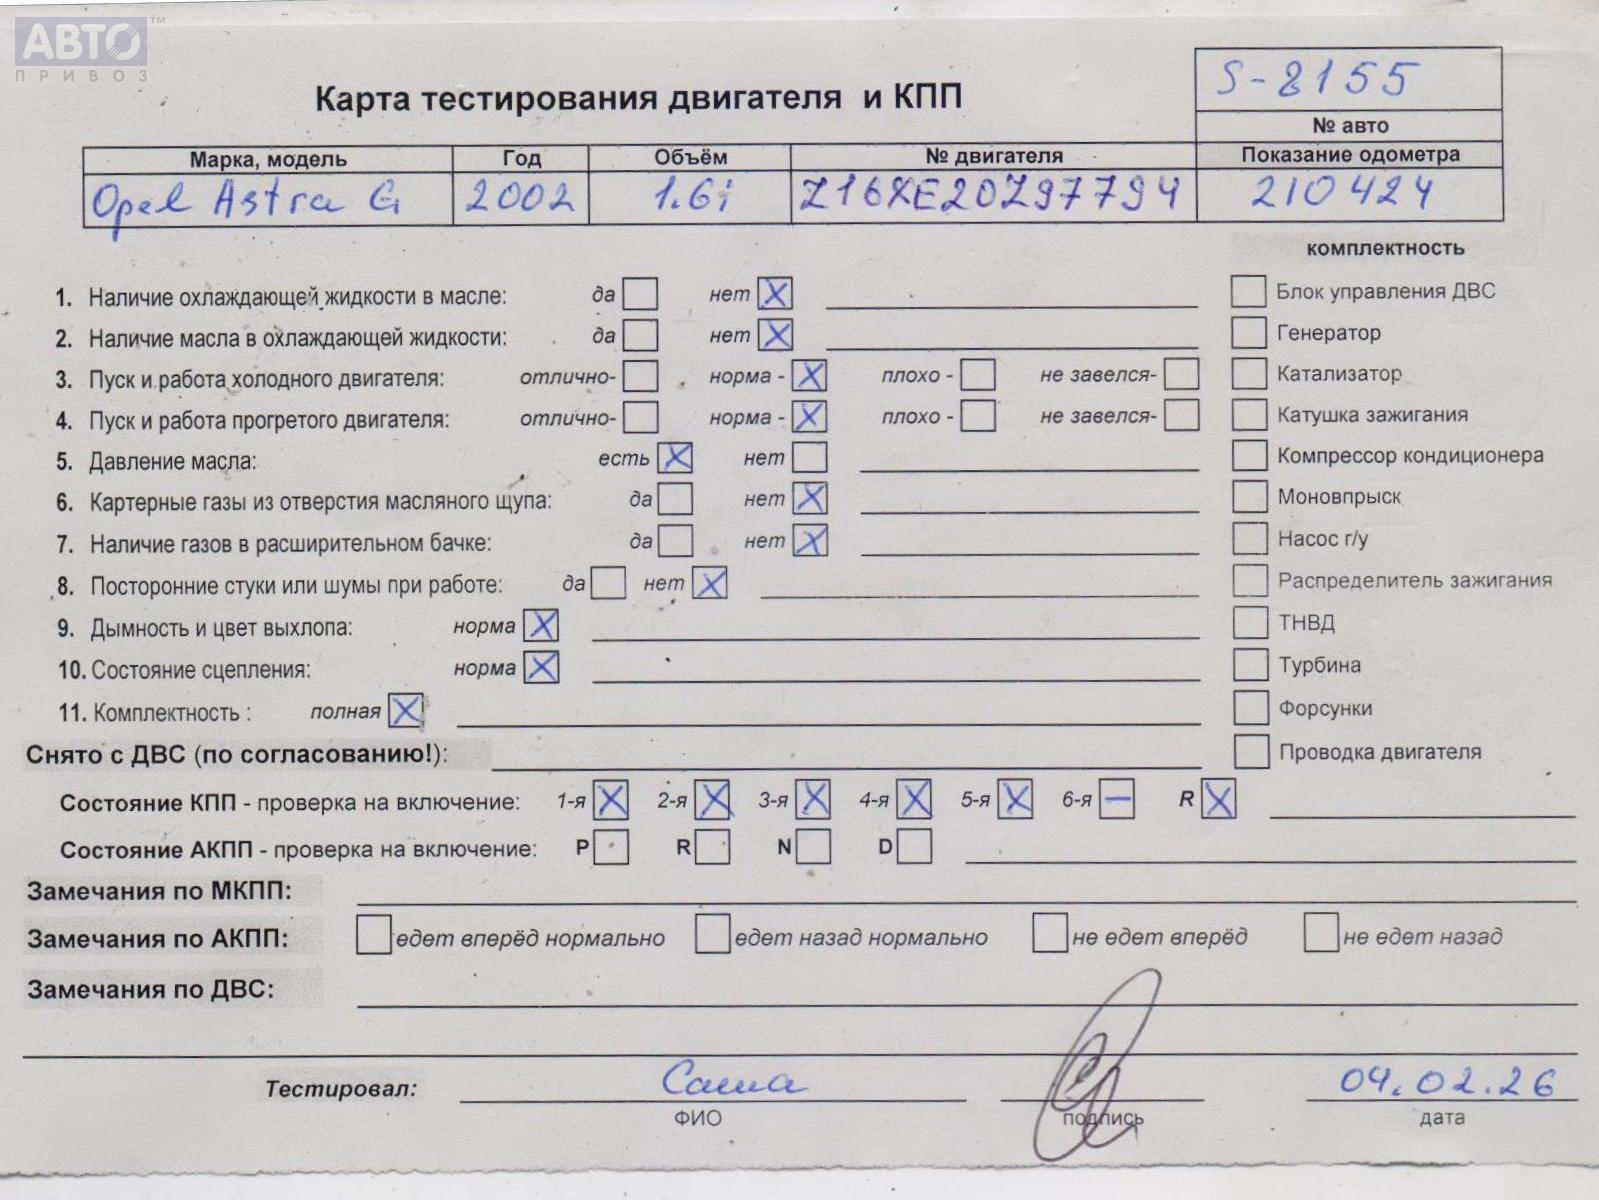 АВТО™
ПРИВОЗ
S-8155
Карта тестирования двигателя и КПП
№ авто
Марка, модель Год Объём № двигателя Показание одометра
Opel Astra G 2002 1.6i Z16XE20Z97794 210424
комплектность
1. Наличие охлаждающей жидкости в масле: да нет X Блок управления ДВС
2. Наличие масла в охлаждающей жидкости: да нет X Генератор
3. Пуск и работа холодного двигателя: отлично- норма - X плохо - не завелся- Катализатор
4. Пуск и работа прогретого двигателя: отлично- норма - X плохо - не завелся- Катушка зажигания
5. Давление масла: есть X нет Компрессор кондиционера
6. Картерные газы из отверстия масляного щупа: да нет X Моновпрыск
7. Наличие газов в расширительном бачке: да нет X Насос г/у
8. Посторонние стуки или шумы при работе: да нет X Распределитель зажигания
9. Дымность и цвет выхлопа: норма X ТНВД
10. Состояние сцепления: норма X Турбина
11. Комплектность : полная X Форсунки
Снято с ДВС (по согласованию!): Проводка двигателя
Состояние КПП - проверка на включение: 1-я X 2-я X 3-я X 4-я X 5-я X 6-я — R X
Состояние АКПП - проверка на включение: P R N D
Замечания по МКПП:
Замечания по АКПП: едет вперёд нормально едет назад нормально не едет вперёд не едет назад
Замечания по ДВС:
Тестировал: Саша 04.02.26
ФИО подпись дата